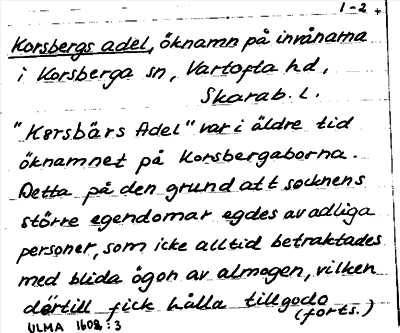 1-2 +
Korsbergs adel, öknamn på invånarna
i Korsberga sn, Vartofta hd,
Skarab. l.
"Körsbärs Adel" var i äldre tid
öknamnet på Korsbergaborna.
Detta på den grund att socknens
större egendomar egdes av adliga
personer, som icke alltid betraktades
med blida ögon av almogen, vilken
därtill fick hålla tillgodo
(forts.)
ULMA 1602:3